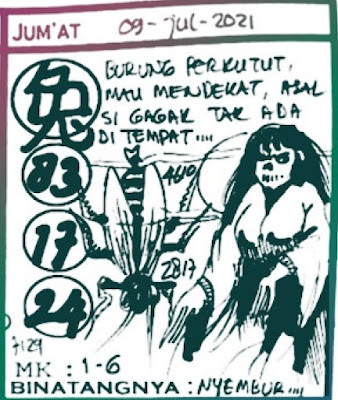 JUM'AT 09-JUL-2021
BURUNG PERKUTUT,
MAU MENDEKAT, ASAL
SI GAGAK TAK ADA
DI TEMPAT....
兔
83
4610
17
2817
24
7129
MK : 1-6
BINATANGNYA : NYEMBUR....